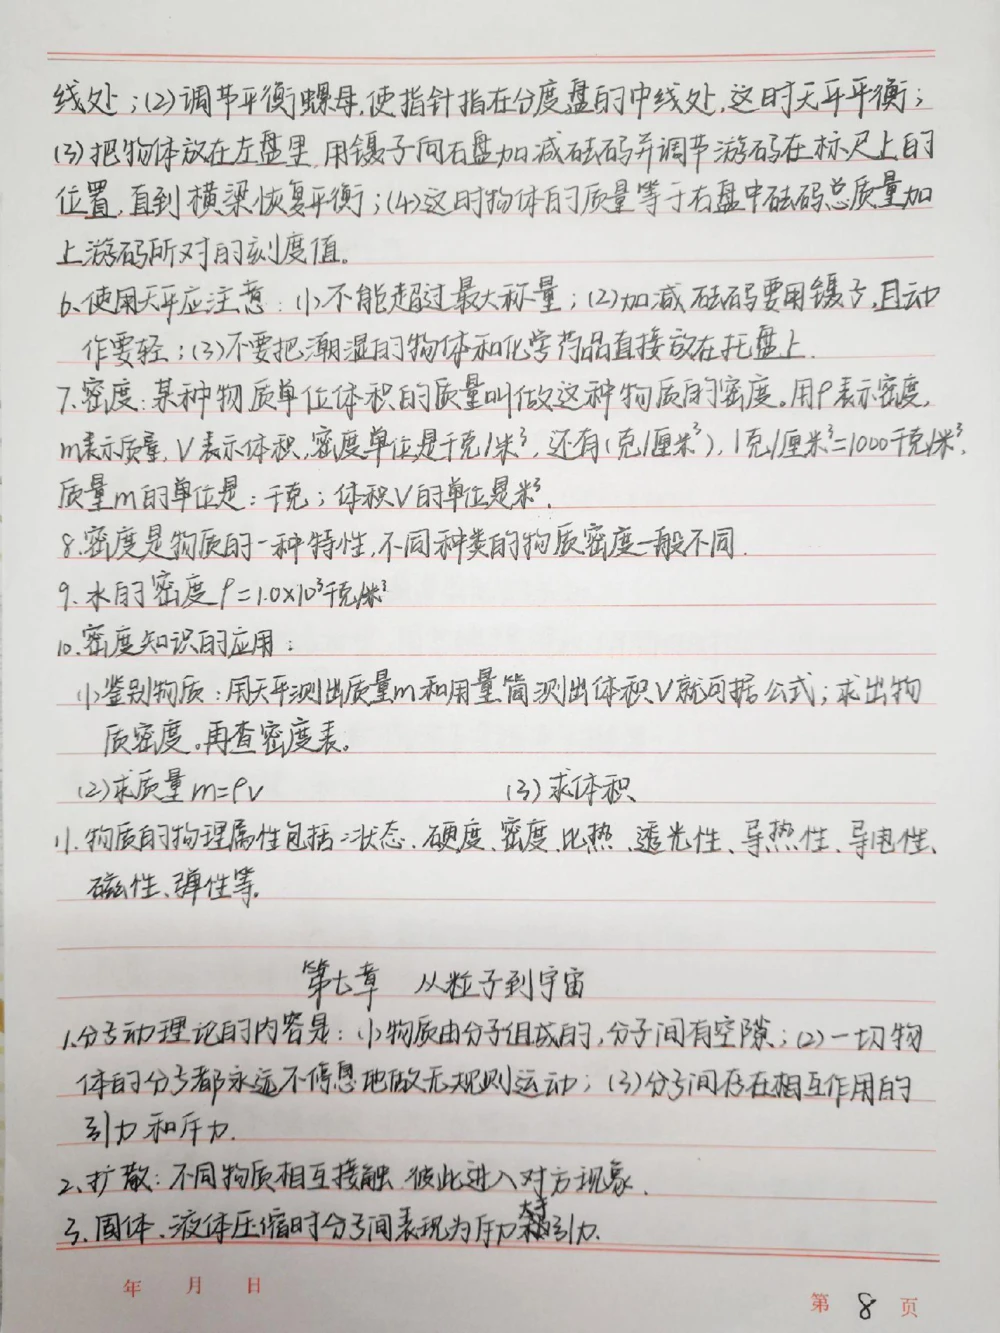 线处；(2)调节平衡螺母,使指针指在分度盘的中线处,这时天平平衡；
(3)把物体放在左盘里,用镊子向右盘加减砝码并调节游码在标尺上的
位置,直到横梁恢复平衡；(4)这时物体的质量等于右盘中砝码总质量加
上游码所对的刻度值。
6、使用天平应注意：(1)不能超过最大称量；(2)加减砝码要用镊子,且动
作要轻；(3)不要把潮湿的物体和化学药品直接放在托盘上.
7.密度：某种物质单位体积的质量叫做这种物质的密度。用ρ表示密度,
m表示质量,V表示体积,密度单位是千克/米³,还有(克/厘米³),1克/厘米³=1000千克/米³,
质量m的单位是：千克；体积V的单位是米³.
8.密度是物质的一种特性,不同种类的物质密度一般不同.
9.水的密度ρ=1.0×10³千克/米³
10.密度知识的应用：
(1)鉴别物质：用天平测出质量m和用量筒测出体积V就可据公式；求出物
质密度。再查密度表。
(2)求质量m=ρv (3)求体积
11.物质的物理属性包括：状态、硬度、密度、比热、透光性、导热性、导电性、
磁性、弹性等。
第七章 从粒子到宇宙
1.分子动理论的内容是：(1)物质由分子组成的,分子间有空隙；(2)一切物
体的分子都永远不停息地做无规则运动；(3)分子间存在相互作用的
引力和斥力.
2、扩散：不同物质相互接触,彼此进入对方现象.
3、固体、液体压缩时分子间表现为斥力大于引力.
年 月 日
第 8 页